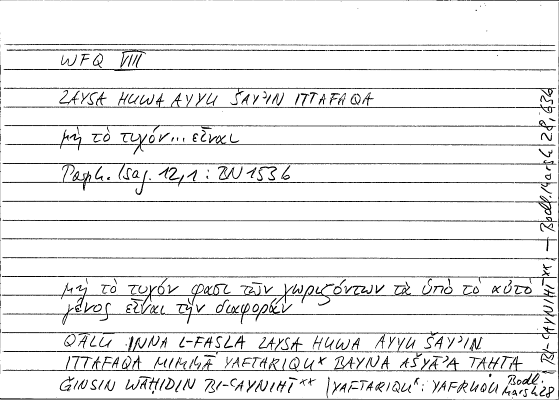 WFQ VIII
LAYSA HUWA AYYU ŠAYʾIN ITTAFAQA
μὴ τὸ τυχόν... εἶναι
Porph. Isag. 12,1 : BN 1536
μὴ τὸ τυχόν φασι τῶν χωριζόντων τὰ ὑπὸ τὸ αὐτὸ
γένος εἶναι τὴν διαφοράν
QĀLŪ INNA L-FAṢLA LAYSA HUWA AYYU ŠAYʾIN
ITTAFAQA MIMMĀ YAFTARIQUˣ BAYNA AŠYĀʾA TAḤTA
ǦINSIN WĀḤIDIN BI-ʿAYNIHĪˣˣ | YAFTARIQUˣ: YAFRUQU Bodl. Marsh 28
| BI-ʿAYNIHĪˣˣ, — Bodl. Marsh. 28, 636